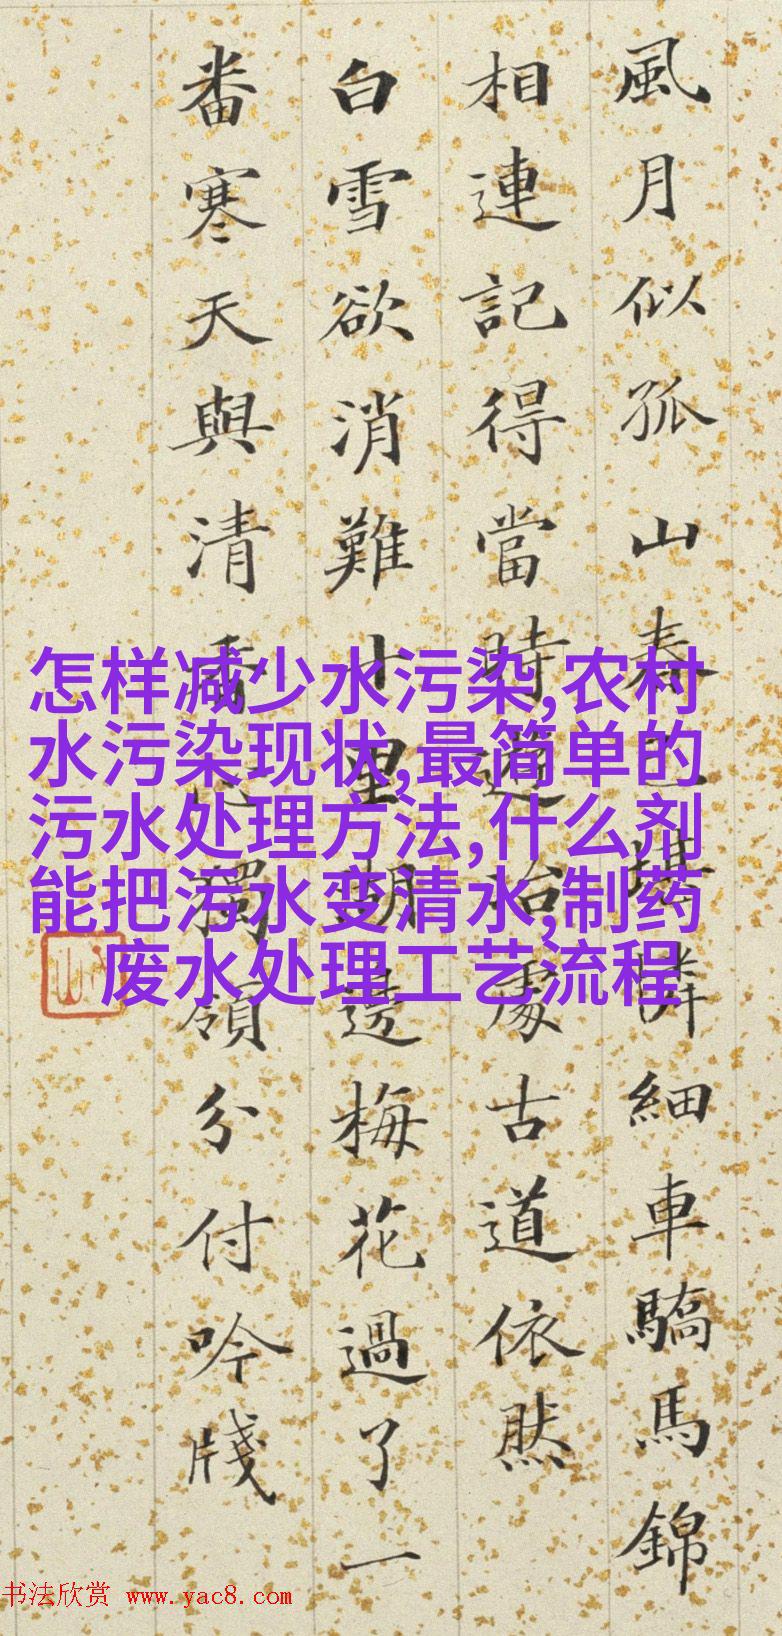 風月似孤山春堪憐細車驕馬錦
相連記得當時遊冶處古道依然
白雪欲消難十里湖邊梅花過了一
番寒天與清香心獨領分付吟牋
怎样减少水污染,农村
水污染现状,最简单的
污水处理方法,什么剂
能把污水变清水,制药
废水处理工艺流程
书法欣赏 www.yac8.com